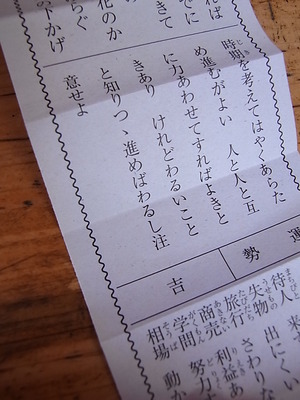 れば
きて
花のか
らぐ
の下かげ
時期を考えてはやくあらた
め進むがよい　人と人と互
に力あわせてすればよきと
きあり　けれどわるいこと
と知りつゝ進めばわるし注
意せよ
運勢
吉
待人　来
失物　出にくい
旅行　さわりな
商売　利益あ
学問　努力
相場　動か